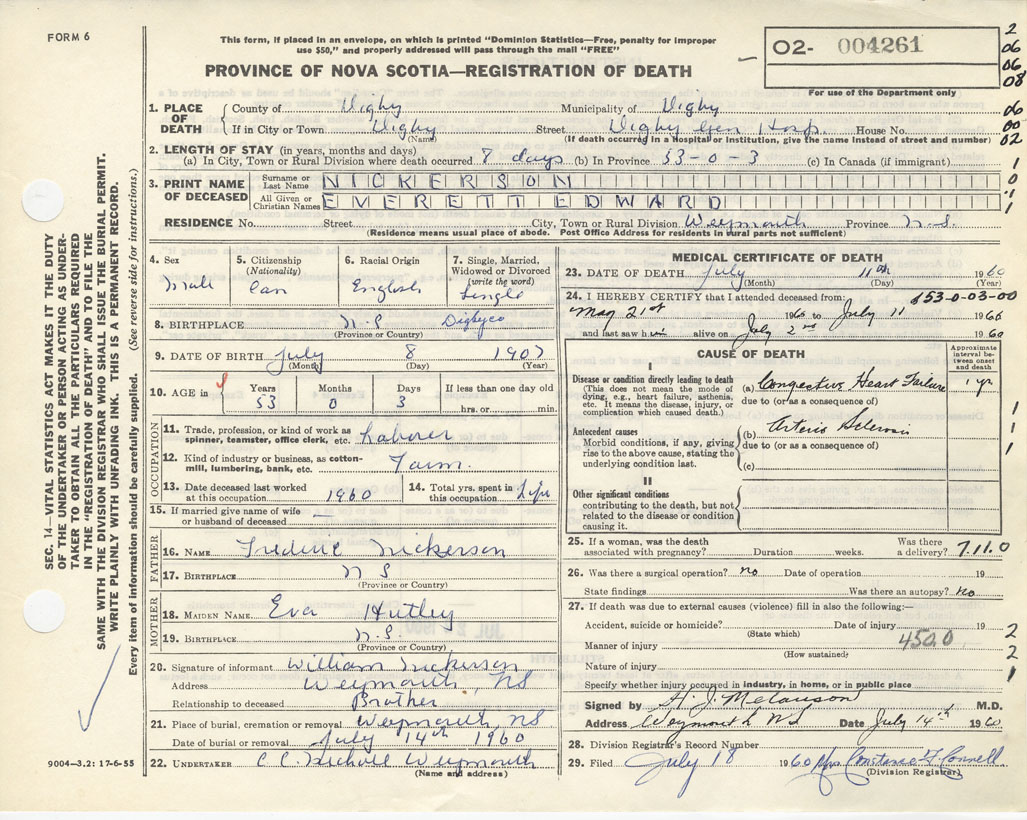 FORM 6
This form, if placed in an envelope, on which is printed "Dominion Statistics—Free, penalty for improper
use $50," and properly addressed will pass through the mail "FREE"
PROVINCE OF NOVA SCOTIA—REGISTRATION OF DEATH
O2- 004261
For use of the Department only
2
06
06
08
1. PLACE OF DEATH { County of Digby Municipality of Digby
06
If in City or Town Digby Street Digby Gen Hosp. House No.
00
(Name) (If death occurred in a Hospital or Institution, give the name instead of street and number)
02
2. LENGTH OF STAY (in years, months and days)
(a) In City, Town or Rural Division where death occurred 8 days (b) In Province 53-0-3 (c) In Canada (if immigrant)
1
3. PRINT NAME OF DECEASED { Surname or Last Name NICKERSON
0
All Given or Christian Names EVERETT EDWARD
1
RESIDENCE No. Street City, Town or Rural Division Weymouth Province N.S.
(Residence means usual place of abode. Post Office Address for residents in rural parts not sufficient)
4. Sex Male
5. Citizenship (Nationality) Can
6. Racial Origin English
7. Single, Married, Widowed or Divorced (write the word) Single
8. BIRTHPLACE N.S Digby co
(Province or Country)
9. DATE OF BIRTH July 8 1907
(Month) (Day) (Year)
10. AGE in { Years 53 Months 0 Days 3 If less than one day old hrs. or min.
OCCUPATION
11. Trade, profession, or kind of work as spinner, teamster, office clerk, etc. Laborer
12. Kind of industry or business, as cotton-mill, lumbering, bank, etc. Farm.
13. Date deceased last worked at this occupation 1960
14. Total yrs. spent in this occupation Life
15. If married give name of wife or husband of deceased —
FATHER
16. NAME Frederic Nickerson
17. BIRTHPLACE N S
(Province or Country)
MOTHER
18. MAIDEN NAME Eva
19. BIRTHPLACE N.S
(Province or Country)
20. Signature of informant William Nickerson
Address Weymouth, NS
Relationship to deceased Brother
21. Place of burial, cremation or removal Weymouth, NS
Date of burial or removal July 14th 1960
22. UNDERTAKER C C Weymouth
(Name and address)
MEDICAL CERTIFICATE OF DEATH
23. DATE OF DEATH July 11th 1960
(Month) (Day) (Year)
24. I HEREBY CERTIFY that I attended deceased from:
153-0-03-00
May 21st 1960 to July 11 1960
and last saw him alive on July 2nd 1960
CAUSE OF DEATH
Approximate interval between onset and death
I
Disease or condition directly leading to death
(This does not mean the mode of dying, e.g., heart failure, asthenia, etc. It means the disease, injury, or complication which caused death.)
(a) Congestive Heart Failure 1 yr
due to (or as a consequence of)
Antecedent causes
Morbid conditions, if any, giving rise to the above cause, stating the underlying condition last.
(b) Arterio Sclerosis
due to (or as a consequence of)
(c)
1
1
1
II
Other significant conditions
contributing to the death, but not related to the disease or condition causing it.
25. If a woman, was the death associated with pregnancy? Duration weeks. Was there a delivery? 7.11.0
26. Was there a surgical operation? no Date of operation 19
State findings Was there an autopsy? no
27. If death was due to external causes (violence) fill in also the following:—
Accident, suicide or homicide? Date of injury 19
(State which)
2
Manner of injury 450.0
(How sustained)
2
Nature of injury
1
Specify whether injury occurred in industry, in home, or in public place
Signed by H. J. Melanson M.D.
Address Weymouth NS Date July 14th 1960
28. Division Registrar's Record Number
29. Filed July 18 1960 Mrs Constance F Connell
(Division Registrar)
SEC. 14—VITAL STATISTICS ACT MAKES IT THE DUTY
OF THE UNDERTAKER OR PERSON ACTING AS UNDER-
TAKER TO OBTAIN ALL THE PARTICULARS REQUIRED
IN THE "REGISTRATION OF DEATH" AND TO FILE THE
SAME WITH THE DIVISION REGISTRAR WHO SHALL ISSUE THE BURIAL PERMIT.
WRITE PLAINLY WITH UNFADING INK. THIS IS A PERMANENT RECORD.
Every item of information should be carefully supplied. (See reverse side for instructions.)
9004—3.2: 17-6-55